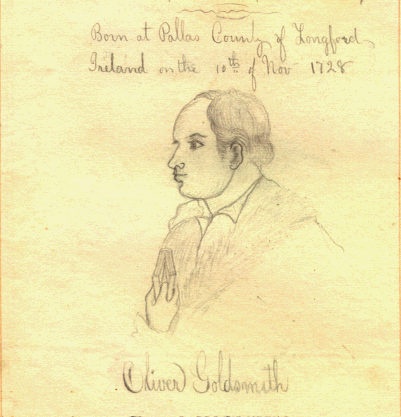 Born at Pallas County of Longford
Ireland on the 10th of Nov 1728
Oliver Goldsmith